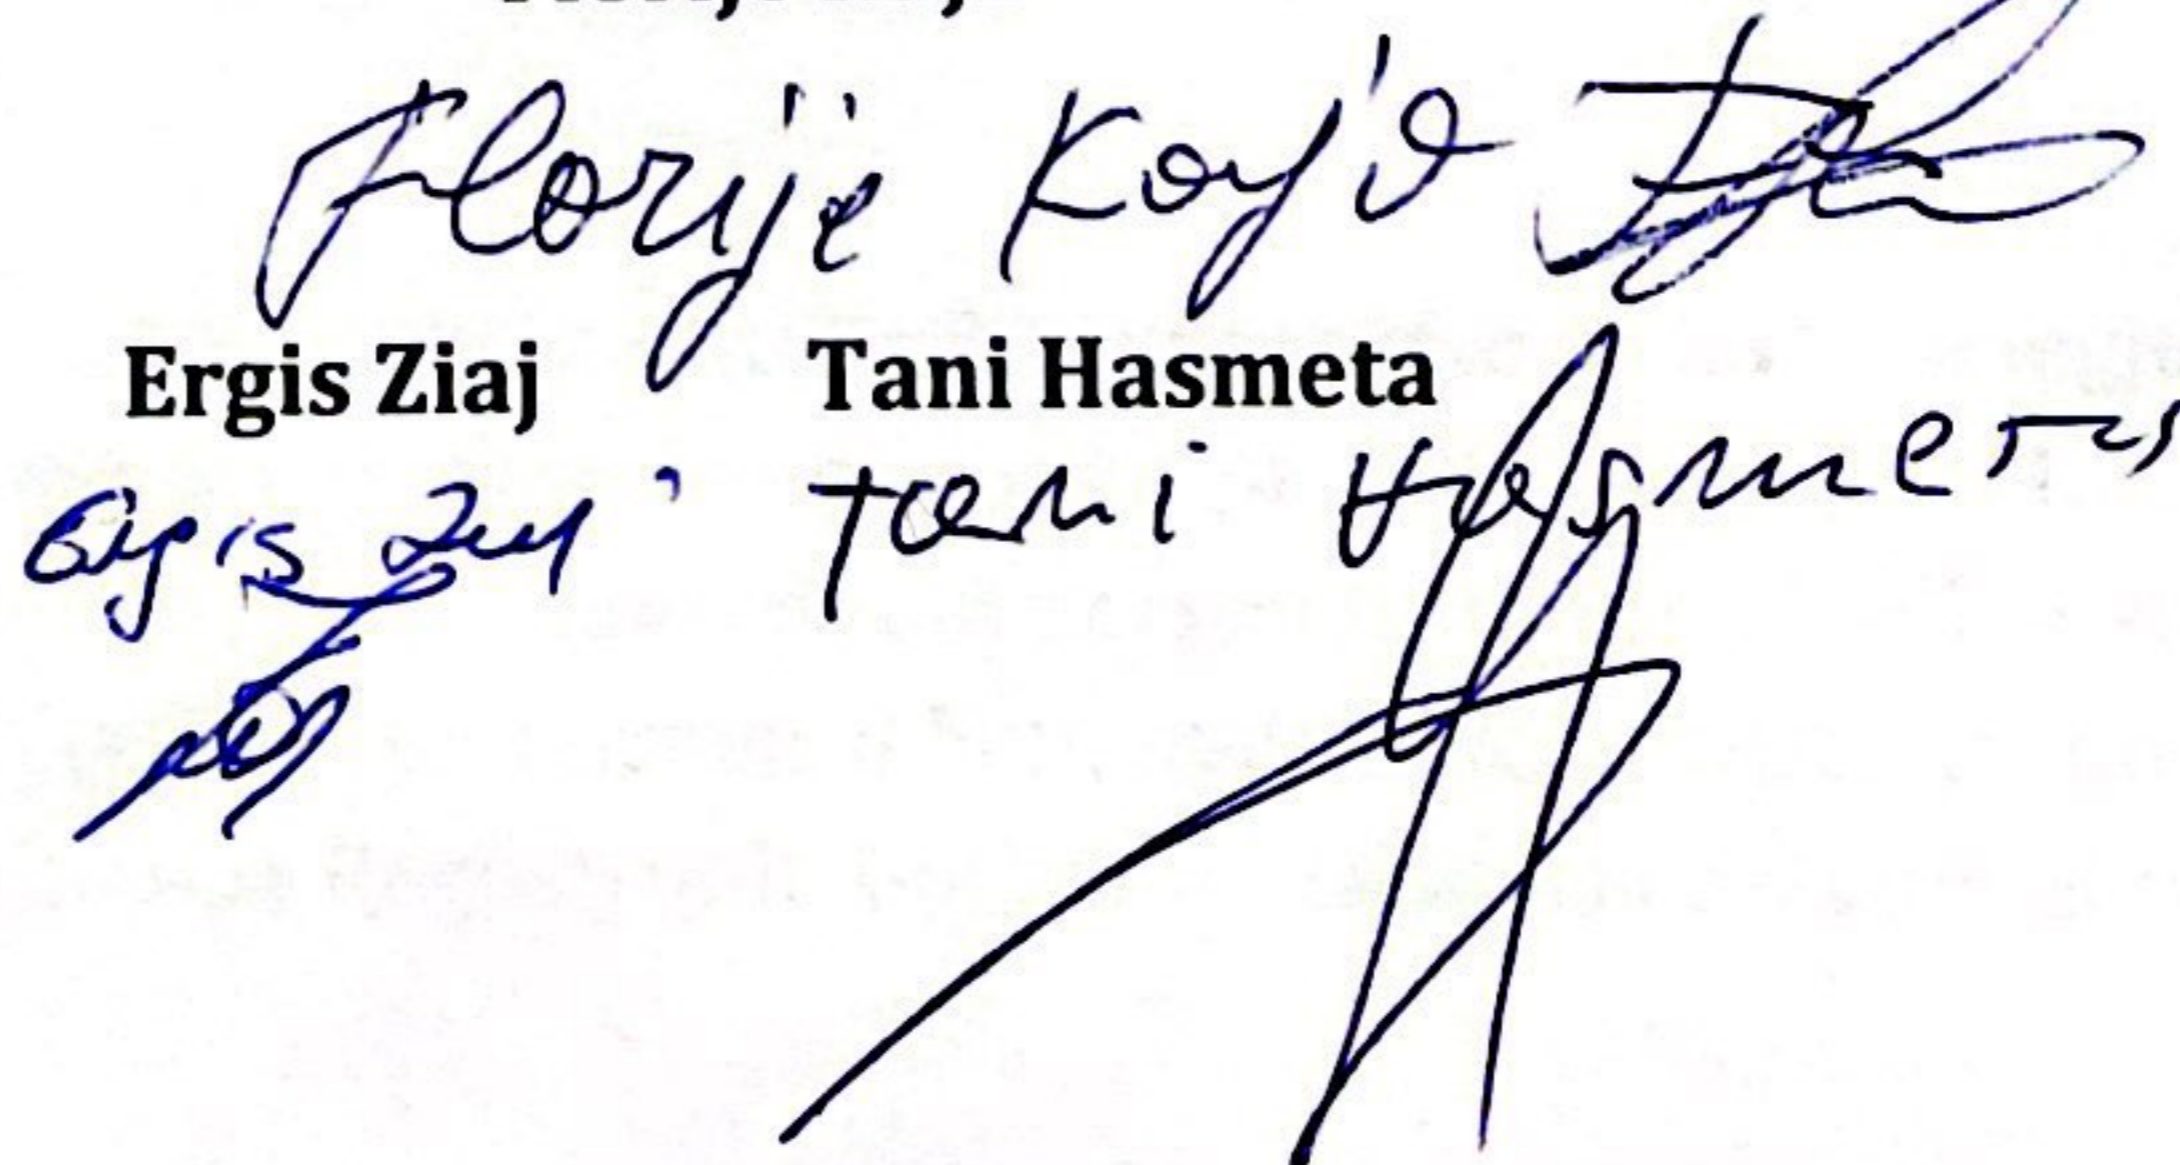 Florije Koxja
Ergis Ziaj Tani Hasmeta
Ergis Ziaj Tani Hasmeta